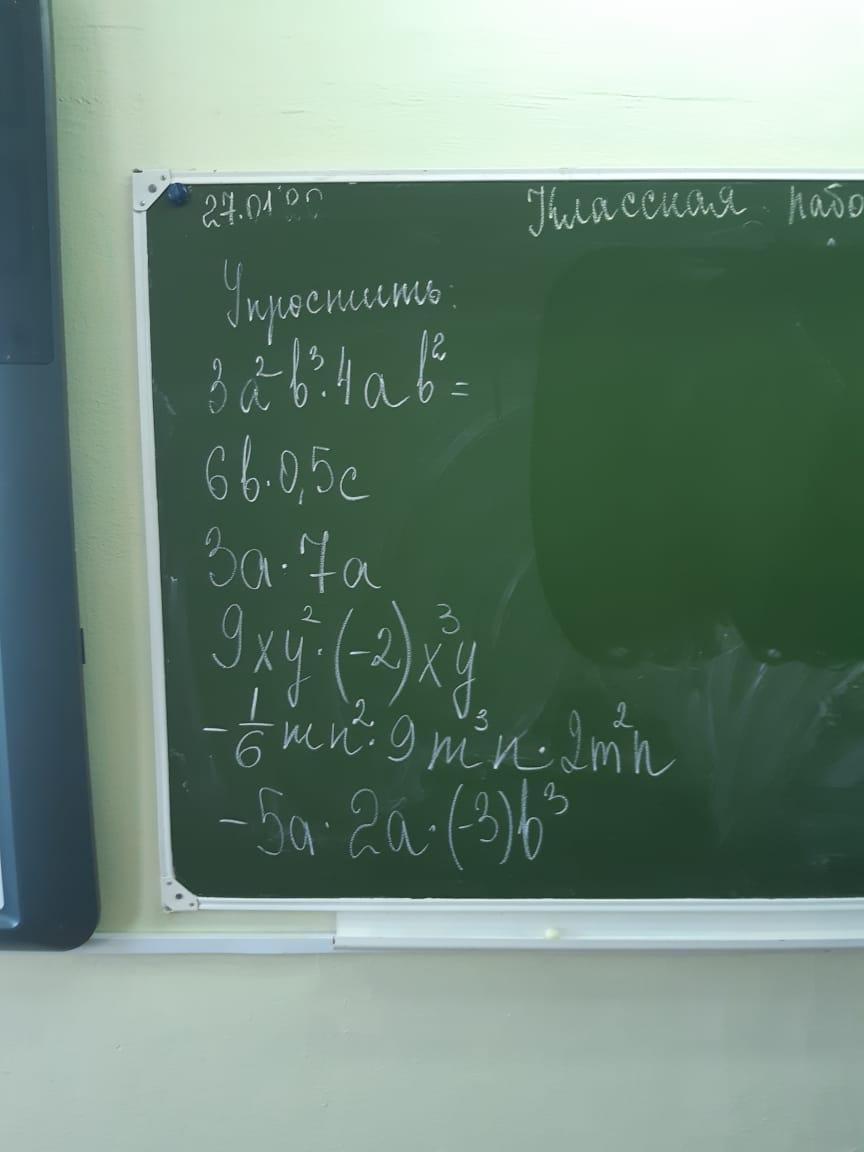 27.01 20 Классная рабо
Упростить:
3a²b³·4ab²=
6b·0,5c
3a·7a
9xy²·(-2)x³y
-1/6mn²·9m³n·2m²n
-5a·2a·(-3)b³